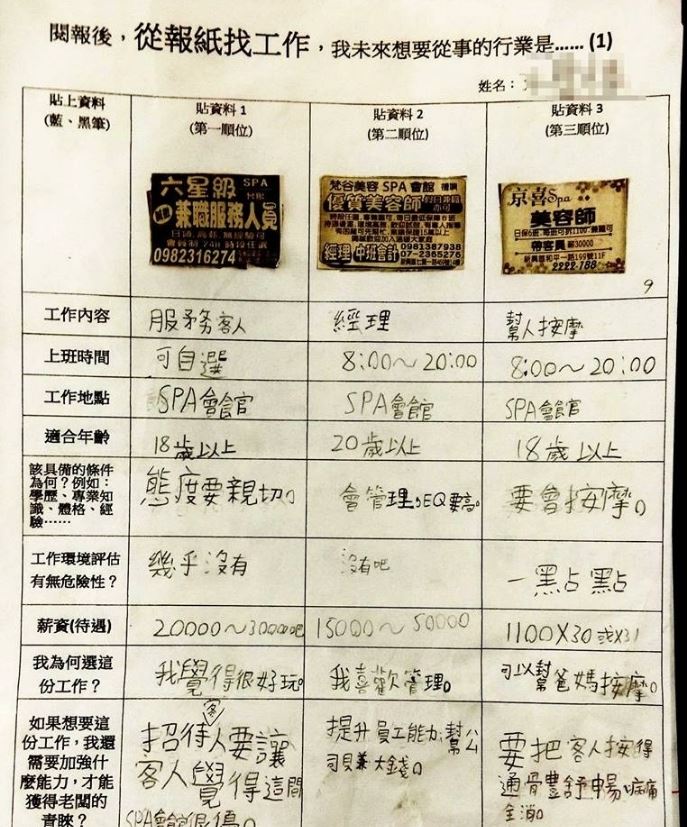 閱報後，從報紙找工作，我未來想要從事的行業是…… (1)
姓名：
貼上資料
(藍、黑筆)
貼資料 1
(第一順位)
貼資料 2
(第二順位)
貼資料 3
(第三順位)
六星級 SPA
兼職服務人員
0982316274
梵谷美容 SPA 會館
優質美容師
經理 中班會計
0981387938
07-2365276
京喜Spa
美容師
帶客員 薪30000
2222-188
9
工作內容
服務客人
經理
幫人按摩
上班時間
可自選
8:00～20:00
8:00～20:00
工作地點
SPA會館官
SPA會館
SPA會館官
適合年齡
18歲以上
20歲以上
18歲以上
該具備的條件
為何？例如：
學歷、專業知
識、體格、經
驗……
態度要親切。
會管理，EQ要高。
要會按摩。
工作環境評估
有無危險性？
幾乎沒有
沒有吧
一點點
薪資(待遇)
20000～30000吧
15000～50000
1100X30 或X31
我為何選這
份工作？
我覺得很好玩。
我喜歡管理。
可以幫爸媽按摩。
如果想要這
份工作，我還
需要加強什
麼能力，才能
獲得老闆的
青睞？
招待客人要讓
客人覺得這間
SPA會館很優。
提升員工能力，幫公
司賺大錢。
要把客人按得
通骨豐舒暢，痠痛
全消。